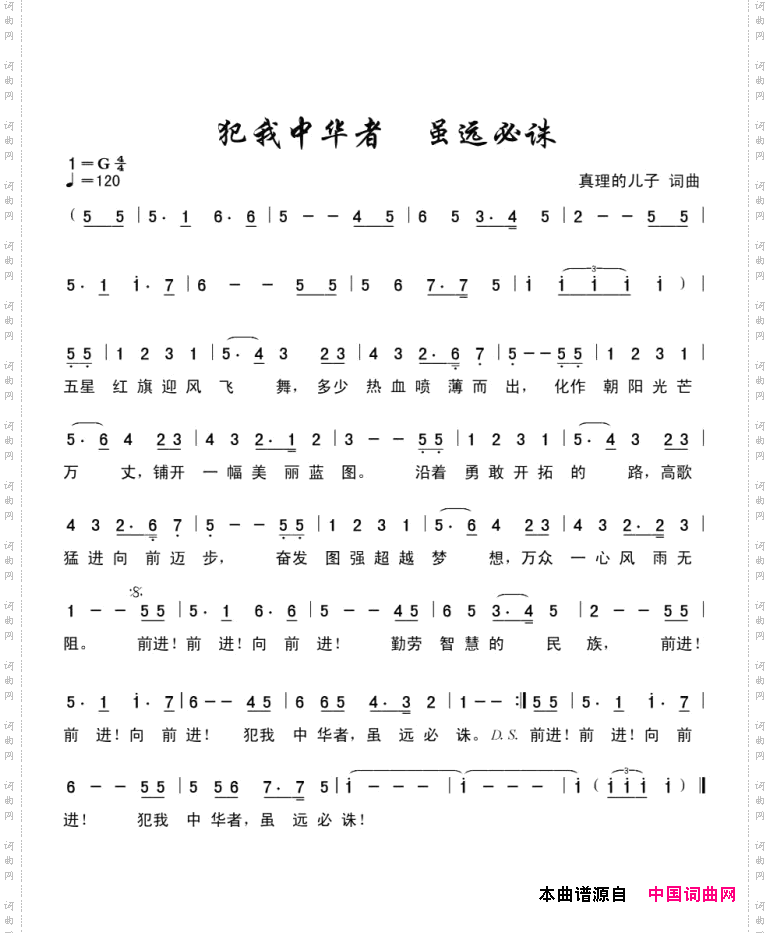 犯我中华者 虽远必诛
1=G 4/4
♩=120
真理的儿子 词曲
( 5 5 | 5· 1 6· 6 | 5 - - 4 5 | 6 5 3·4 5 | 2 - - 5 5 |
5· 1 i· 7 | 6 - - 5 5 | 5 6 7·7 5 | i i i i i ) |
5 5 | 1 2 3 1 | 5· 4 3 2 3 | 4 3 2·6 7 | 5 - - 5 5 | 1 2 3 1 |
五星 红旗迎风 飞 舞, 多少 热血喷 薄而 出, 化作 朝阳光芒
5· 6 4 2 3 | 4 3 2·1 2 | 3 - - 5 5 | 1 2 3 1 | 5· 4 3 2 3 |
万 丈,铺开 一幅美 丽蓝 图。 沿着 勇敢开拓 的 路,高歌
4 3 2·6 7 | 5 - - 5 5 | 1 2 3 1 | 5· 6 4 2 3 | 4 3 2·2 3 |
猛进向 前迈 步, 奋发 图强超越 梦 想,万众 一心风 雨无
1 - - 5 5 | 5· 1 6· 6 | 5 - - 4 5 | 6 5 3·4 5 | 2 - - 5 5 |
阻。 前进!前 进!向 前 进! 勤劳 智慧的 民 族, 前进!
5· 1 i· 7 | 6 - - 4 5 | 6 6 5 4·3 2 | 1 - - :‖ 5 5 | 5· 1 i· 7 |
前 进!向 前 进! 犯我 中 华者,虽 远 必 诛。D.S. 前进!前 进!向 前
6 - - 5 5 | 5 5 6 7·7 5 | i - - - | i - - - | i ( i i i i ) ‖
进! 犯我 中 华者,虽 远 必 诛!
本曲谱源自 中国词曲网
词曲网